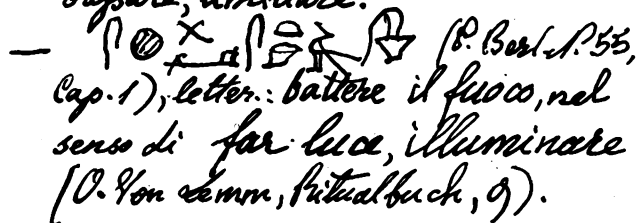 — (P. Berl. N. 55,
Cap. 1); letter.: battere il fuoco, nel
senso di far luce, illuminare
(O. Von Lemm, Ritualbuch, 9).